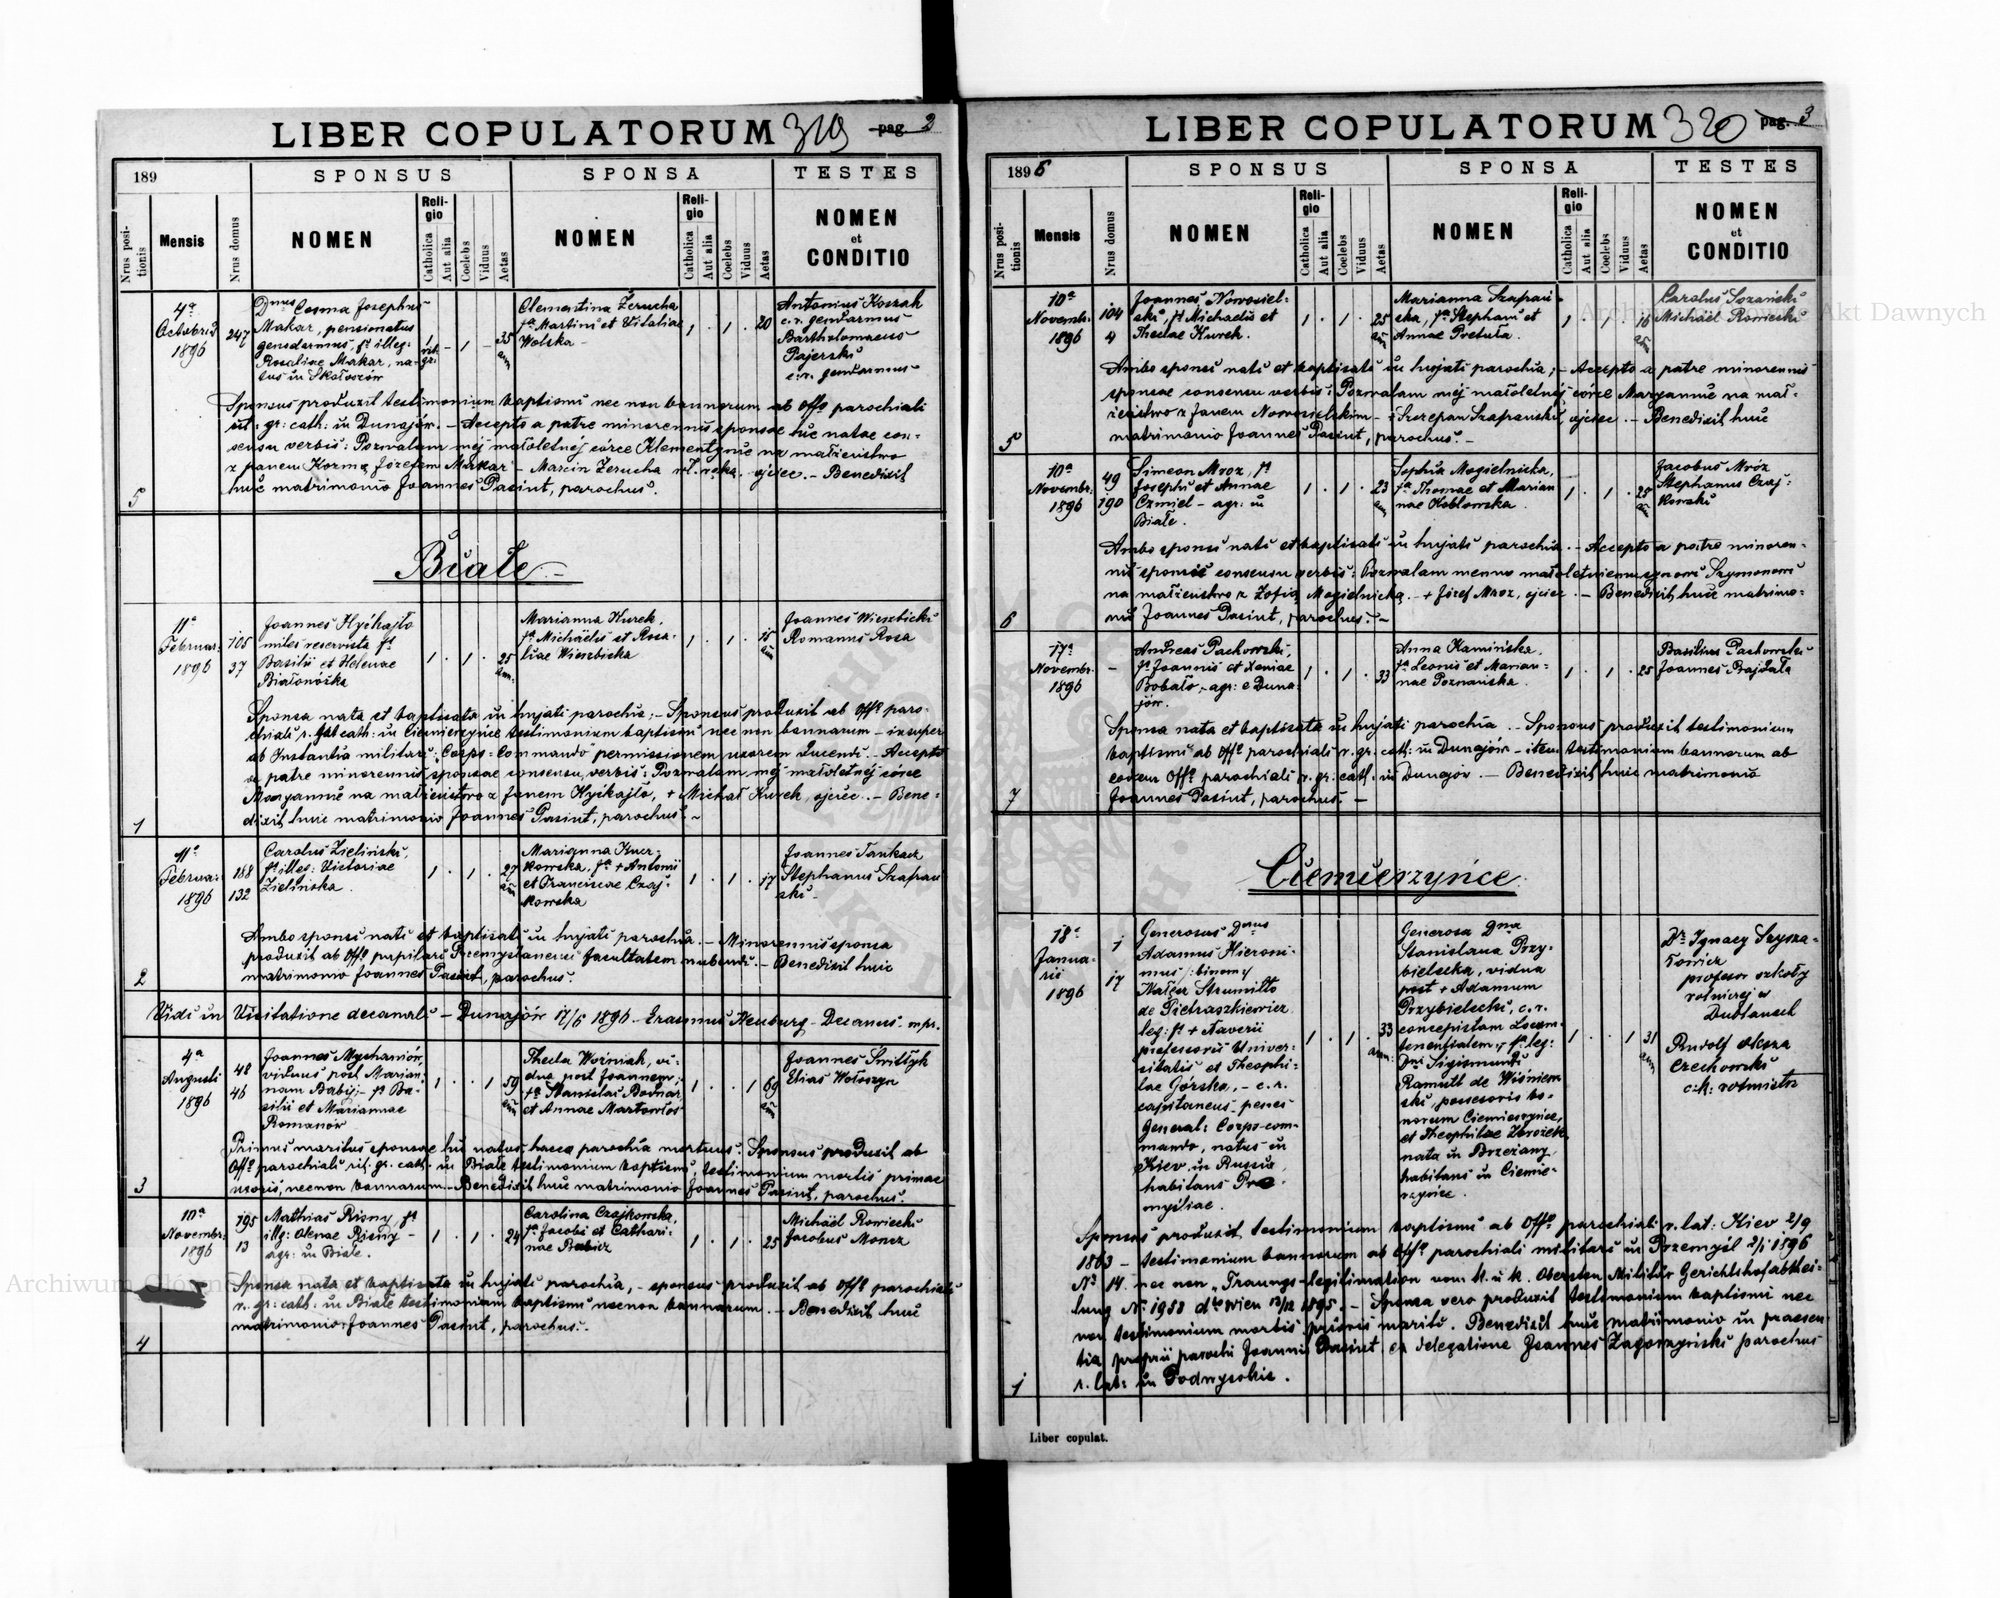 LIBER COPULATORUM 319 pag. 2
189
SPONSUS
SPONSA
TESTES
Nrus positionis
Mensis
Nrus domus
NOMEN
Religio
Catholica
Aut alia
Coelebs
Viduus
Aetas
NOMEN
Religio
Catholica
Aut alia
Coelebs
Viduus
Aetas
NOMEN
et
CONDITIO
4ª
Octobris
1896
247
Dnus Cosma Josephus
Makar, pensionatus
gensdarmus, fs illeg:
Rosaliae Makar, na-
tus in Skołoszów
rit. gr:
- 1 -
35 ann
Clementina Żerucha
fa Martini et Vitaliae
Wolska -
1 . 1 . 20
Antonius Koszak
c.r. gendarmus
Bartholomaeus
Pajerski
c.r. gendarmus -
Sponsus produxit testimonium baptismi nec non bannorum ab Offo parochiali
rit: gr: cath: in Dunajów. - Accepto a patre minorennis sponsae hic natae con-
sensu verbis: Pozwalam mej małoletniéj córce Klementynie na małżeństwo
z panem Kozmą Józefem Makar - Marcin Żerucha wł. ręką. ojciec. - Benedixit
huic matrimonio Joannes Pasiut, parochus.
5
Białe -
11ª
Februar:
1896
105
37
Joannes Hyćkajło
miles reservista fs
Basilii et Helenae
Białonóżka
1 . 1 . 25 ann:
Marianna Kurek,
fa Michäelis et Rosa-
liae Wierzbicka
1 . 1 . 15 ann
Joannes Wierzbicki
Romanus Rosa
Sponsa nata et baptisata in hujati parochia; - Sponsus produxit ab Offo paro-
chiali r. gr cath: in Ciemierzyńce testimonium baptismi nec non bannorum - insuper
ab Instantia militari: Corps-commando permissionem uxorem ducendi. - Accepto
a patre minorennis sponsae consensu verbis: Pozwalam mej małoletniéj córce
Maryannie na małżeństwo z Janem Hyćkajło, + Michał Kurek, ojciec. - Bene-
dixit huic matrimonio Joannes Pasiut, parochus. ~
1
11ª
Februar:
1896
188
132
Carolus Zieliński,
fs illeg: Victoriae
Zielińska.
1 . 1 . 27 ann
Marianna Kucz-
kowska, fa + Antonii
et Franciscae Czaj-
kowska
1 . 1 . 17
Joannes Tankacz
Stephanus Szafrań
ski -
Ambo sponsi nati et baptisati in hujati parochia. - Minorennis sponsa
produxit ab Offo pupilari Przemyslanensi facultatem nubendi. - Benedixit huic
matrimonio Joannes Pasiut, parochus.
2
Vidi in Visitatione decanali - Dunajów 17/6 1896. Erasmus Neuburg - Decanus. mpr.
4ª
Augusti
1896
48
46
Joannes Mychaniów
viduus post Marian-
nam Babij; - fs Ba-
silii et Mariannae
Romanów
1 . . 1 59 ann
Thecla Woźniak, vi-
dua post Joannem,
fa Stanislai Bodnar
et Annae Martowłos
1 . . 1 69 ann
Joannes Switłyk
Elias Wołoszyn
Primus maritus sponsae hic natus, hacce parochia mortuus. Sponsus produxit ab
Offo parochiali rit. gr. cath: in Białe testimonium baptismi, testimonium mortis primae
uxoris, necnon bannorum. - Benedixit huic matrimonio Joannes Pasiut, parochus.
3
10ª
Novembr:
1896
195
13
Mathias Risny fs
illg: Olenae Risny -
agr: in Białe.
1 . 1 . 24
Carolina Czajkowska,
fa Jacobi et Cathari-
nae Babicz
1 . 1 . 25
Michäel Rowiecki
Jacobus Moncz
Sponsa nata et baptisata in hujati parochia, - sponsus produxit ab Offo parochiali
r. gr: cath: in Białe testimonium baptismi necnon bannorum. - Benedixit huic
matrimonio: Joannes Pasiut, parochus.-
4
LIBER COPULATORUM 320 pag. 3
1896
SPONSUS
SPONSA
TESTES
Nrus positionis
Mensis
Nrus domus
NOMEN
Religio
Catholica
Aut alia
Coelebs
Viduus
Aetas
NOMEN
Religio
Catholica
Aut alia
Coelebs
Viduus
Aetas
NOMEN
et
CONDITIO
10ª
Novembr.
1896
104
4
Joannes Nowosiel-
ski, fs Michaelis et
Theclae Kurek.
1 . 1 . 25 ann
Marianna Szafrań-
ska, fa Stephani et
Annae Pretuła.
1 . 1 . 16 ann
Carolus Sozański
Michäel Rowiecki
Ambo sponsi nati et baptisati in hujati parochia; - Accepto a patre minorennis
sponsae consensu verbis: Pozwalam méj małoletniéj córce Maryannie na mał-
żeństwo z Janem Nowosielskim - + Szczepan Szafrański, ojciec. - Benedixit huic
matrimonio Joannes Pasiut, parochus. -
5
10ª
Novembr.
1896
49
190
Simeon Mroz, fs
Josephi et Annae
Czmiel - agr: in
Białe.
1 . 1 . 23 ann
Sophia Mogielnicka,
fa Thomae et Marian
nae Kobłowska.
1 . 1 . 25 ann
Jacobus Mróz
Stephanus Czaj-
kowski
Ambo sponsi nati et baptisati in hujati parochia. - Accepto a patre minoren-
nis sponsi consensu verbis: Pozwalam memu małoletniemu synowi Szymonowi
na małżeństwo z Zofią Mogielnicką. - + Józef Mroz, ojciec. - Benedixit huic matrimo-
nio Joannes Pasiut, parochus. -
6
17ª
Novembr.
1896
-
Andreas Pachowski,
fs Joannis et Xeniae
Bobało, - agr: e Duna-
jów.
1 . 1 . 33
Anna Kamińska,
fa Leonis et Marian-
nae Poznańska.
1 . 1 . 25
Basilius Pachowski
Joannes Prajdała
Sponsa nata et baptisata in hujati parochia. - Sponsus produxit testimonium
baptismi ab Offo parochiali r. gr: cath: in Dunajów - item testimonium bannorum ab
eodem Offo parochiali r. gr: cath: in Dunajów. - Benedixit huic matrimonio
Joannes Pasiut, parochus. -
7
Ciemierzyńce
18ª
Janua-
rii
1896
1
17
Generosus Dnus
Adamus Hieroni-
mus /: binomy
Małcz Strumiłło
de Pietraszkiewicz
leg: fs + Xaverii
professoris Univer-
sitatis et Theophi-
lae Górska, - c.r.
capitaneus penes
General: Corps-com-
mando, natus in
Kiev, in Russia,
habitans Prze-
mysliae.
1 . 1 . 33 ann:
Generosa Dna
Stanislava Przy-
bielecka, vidua
post + Adamum
Przybielecki, c.r.
concepistam Locum-
tenentialem; fa leg:
Dni Sigismundi
Ramułt de Wiśniew
ski, possessoris bo-
norum Ciemierzyńce,
et Theophilae Zbrożek,
nata in Brzeżany,
habitans in Ciemie-
rzyńce.
1 . . 1 31 ann
Dr Ignacy Szysza-
łowicz
profesor szkoły
rolniczej w
Dublanach
Rudolf Oksza
Czechowski
c:k: rotmistrz
Sponsus produxit testimonium baptismi ab Offo parochiali r. lat: Kiev 2/9
1863 - testimonium bannorum ab Offo parochiali militari in Przemyśl 2/1 1896
No 14. nec non „Trauungs-legitimation vom k. u. k. Obersten Militär Gerichtshof abthei-
lung No 1958 dto Wien 13/12 1895. - Sponsa vero produxit testimonium baptismi nec
non testimonium mortis prioris mariti. Benedixit huic matrimonio in praesen
tia proprii parochi Joannis Pasiut ex delegatione Joannes Zagórzyński parochus
r. lat: in Podwysokie.
1
Liber copulat.
Archiwum Główne Akt Dawnych